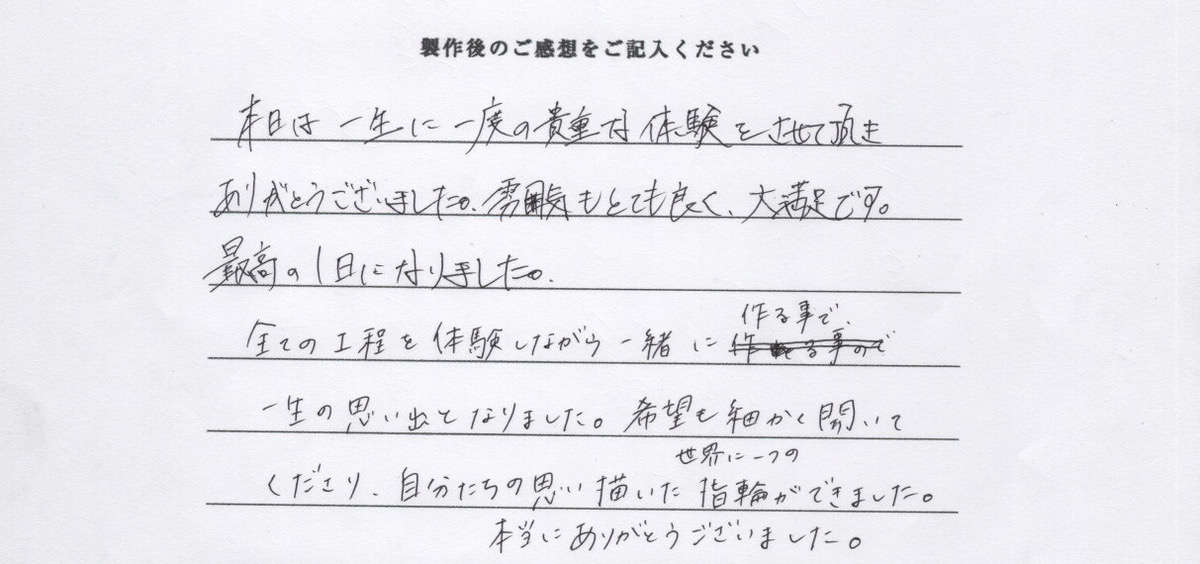 製作後のご感想をご記入ください
本日は一生に一度の貴重な体験をさせて頂き
ありがとうございました。雰囲気もとても良く、大満足です。
最高の1日になりました。
作る事で、
全ての工程を体験しながら一緒に
一生の思い出となりました。希望も細かく聞いて
世界に一つの
くださり、自分たちの思い描いた指輪ができました。
本当にありがとうございました。